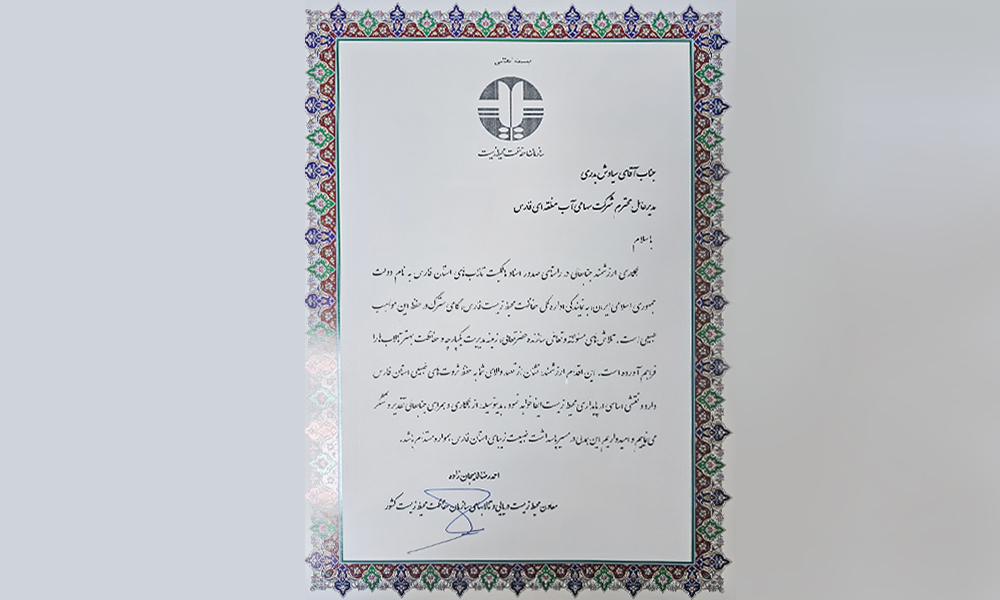 بسمه تعالی
سازمان حفاظت محیط زیست
جناب آقای سیاوش بدری
مدیرعامل محترم شرکت سهامی آب منطقه ای فارس
با سلام
همکاری ارزشمند جنابعالی در راستای صدور اسناد مالکیت تالاب‌های استان فارس به نام دولت
جمهوری اسلامی ایران، به نمایندگی اداره کل حفاظت محیط زیست فارس، گامی مشترک در حفظ این مواهب
طبیعی است. تلاش های مسئولانه و تعامل سازنده حضرتعالی، زمینه مدیریت یکپارچه و حفاظت بهتر تالاب ها را
فراهم آورده است. این اقدام ارزشمند، نشان از تعهد والای شما به حفظ ثروت های طبیعی استان فارس
دارد و نقشی اساسی در پایداری محیط زیست ایفا خواهد نمود. بدینوسیله، از همکاری و همراهی جنابعالی تقدیر و تشکر
می نماییم و امیدواریم این همدلی در مسیر پاسداشت طبیعت زیبای استان فارس، همواره مستدام باشد.
احمدرضا لاهیجان زاده
معاون محیط زیست دریایی و تالابهای سازمان حفاظت محیط زیست کشور